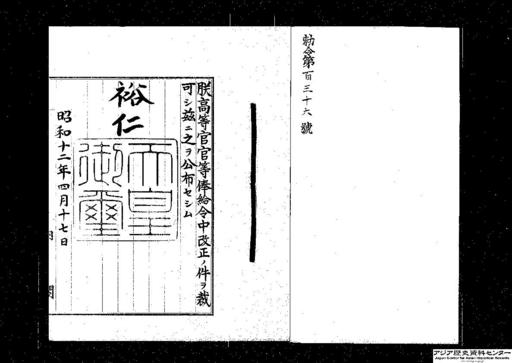 勅令第百三十六號
朕高等官官等俸給令中改正ノ件ヲ裁
可シ茲ニ之ヲ公布セシム
裕仁
天皇御璽
昭和十二年四月十七日
アジア歴史資料センター
Japan Center for Asian Historical Records